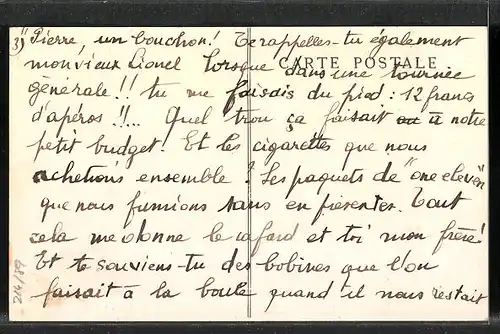 3) Pierre, un bouchon! Te rappelles-tu également
mon vieux Lionel lorsque dans une tournée
CARTE POSTALE
générale!! tu me faisais du pied: 12 francs
d'apéros!!... Quel trou ça faisait à notre
petit budget! Et les cigarettes que nous
achetions ensemble? Les paquets de "one eleven"
que nous fumions sans en présenter. Tout
cela me donne le cafard et toi mon frère!
Et te souviens-tu des bobines que l'on
faisait à la boule quand il nous restait
216/89